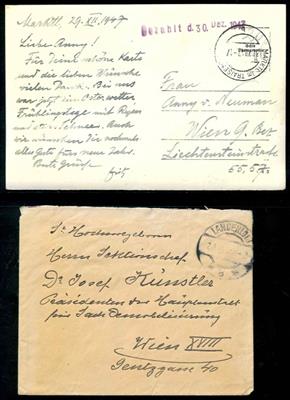 Marktl, 29.XII.1947
Liebe Anny!
Für Deine schöne Karte
und die lieben Wünsche
vielen Dank. Bei uns
war jetzt ein Osterwetter
Frühlingstage mit Regen
und Schnee. Auch
wir wünschen Dir nochmals
alles Gute fürs neue Jahr.
Bezahlt d. 30. Dez. 1947
MARKTL IM TRAISENTAL
Frau
Anny v. Neuman
Wien 9. Bez
Liechtensteinstraße
55,
Sr. Hochwohlgeboren
Herrn Sektionschef
Dr Josef Künstler
Präsidenten der Hauptanstalt
für Sachdemobilisierung
Wien XVIII
Gentzgasse 40